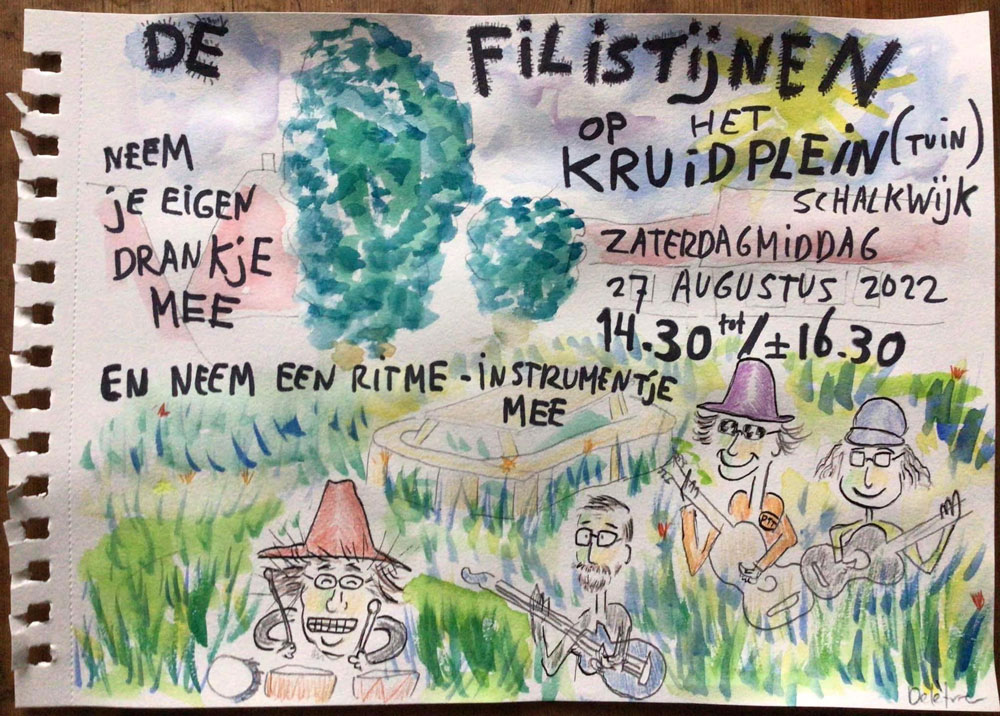 DE FILISTIJNEN
OP HET
KRUIDPLEIN (TUIN)
SCHALKWIJK
ZATERDAGMIDDAG
27 AUGUSTUS 2022
14.30 tot/± 16.30
NEEM
JE EIGEN
DRANKJE
MEE
EN NEEM EEN RITME-INSTRUMENTJE
MEE
PTT